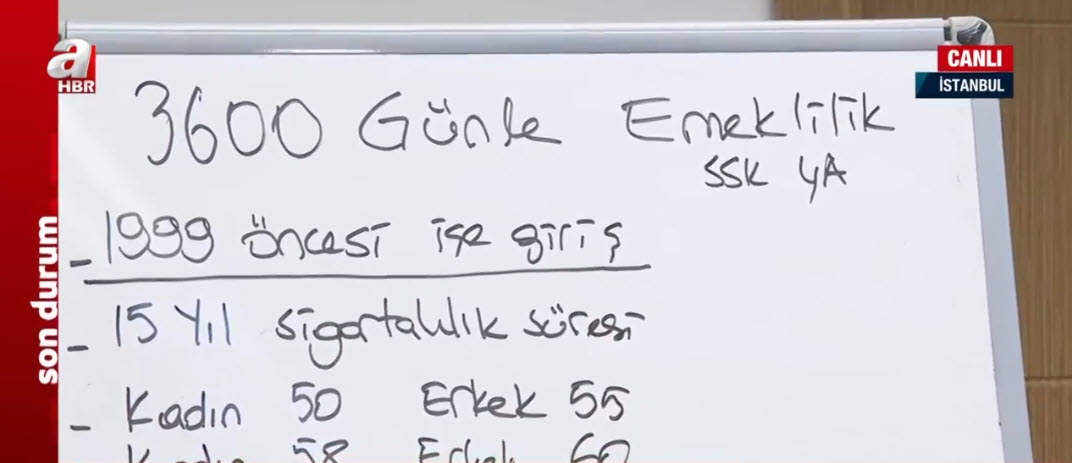 a
HBR
CANLI
İSTANBUL
3600 Günle Emeklilik
SSK 4A
- 1999 öncesi işe giriş
- 15 Yıl sigortalılık süresi
- Kadın 50 Erkek 55
Kadın 58 Erkek 60
son durum